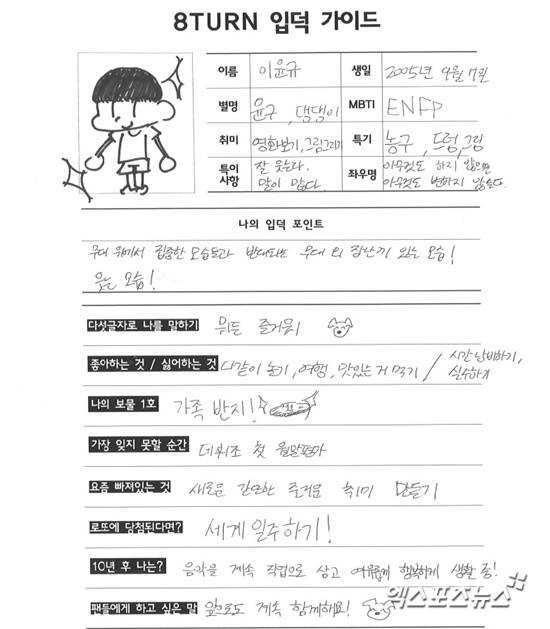 8TURN 입덕 가이드
이름 이윤규 생일 2005년 9월 7일
별명 윤구, 댕댕이 MBTI ENFP
취미 영화보기, 그림그리기 특기 농구, 드럼, 그림
특이사항 잘 웃는다. 말이 많다. 좌우명 아무것도 하지 않으면 아무것도 변하지 않는다.
나의 입덕 포인트
무대 위에서 집중한 모습들과 반대되는 무대 외 장난끼 있는 모습!
웃는 모습!
다섯글자로 나를 말하기 뭐든 즐거워
좋아하는 것 / 싫어하는 것 다같이 놀기, 여행, 맛있는 거 먹기 / 시간 낭비하기, 실수하기
나의 보물 1호 가족 반지!
가장 잊지 못할 순간 데뷔조 첫 월말평가
요즘 빠져있는 것 새로운 간단한 즐거운 취미 만들기
로또에 당첨된다면? 세계 일주하기!
10년 후 나는? 음악을 계속 직업으로 삼고 여유롭게 행복하게 생활 중!
팬들에게 하고 싶은 말 앞으로도 계속 함께해요!
엑스포츠뉴스